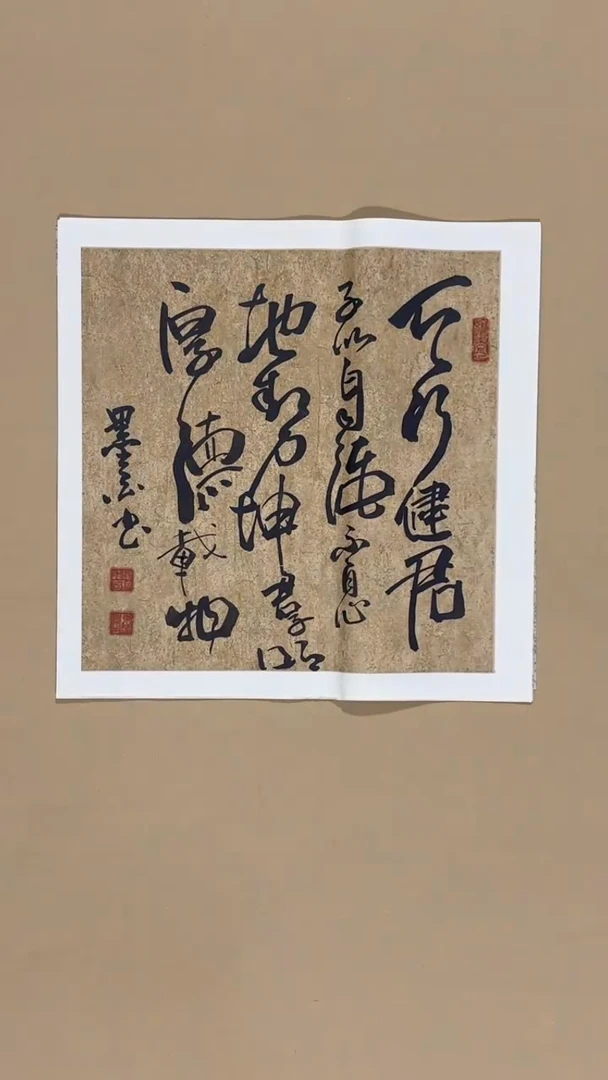 天行健君
子以自強不息
地势坤君子以
厚德載物
墨 书